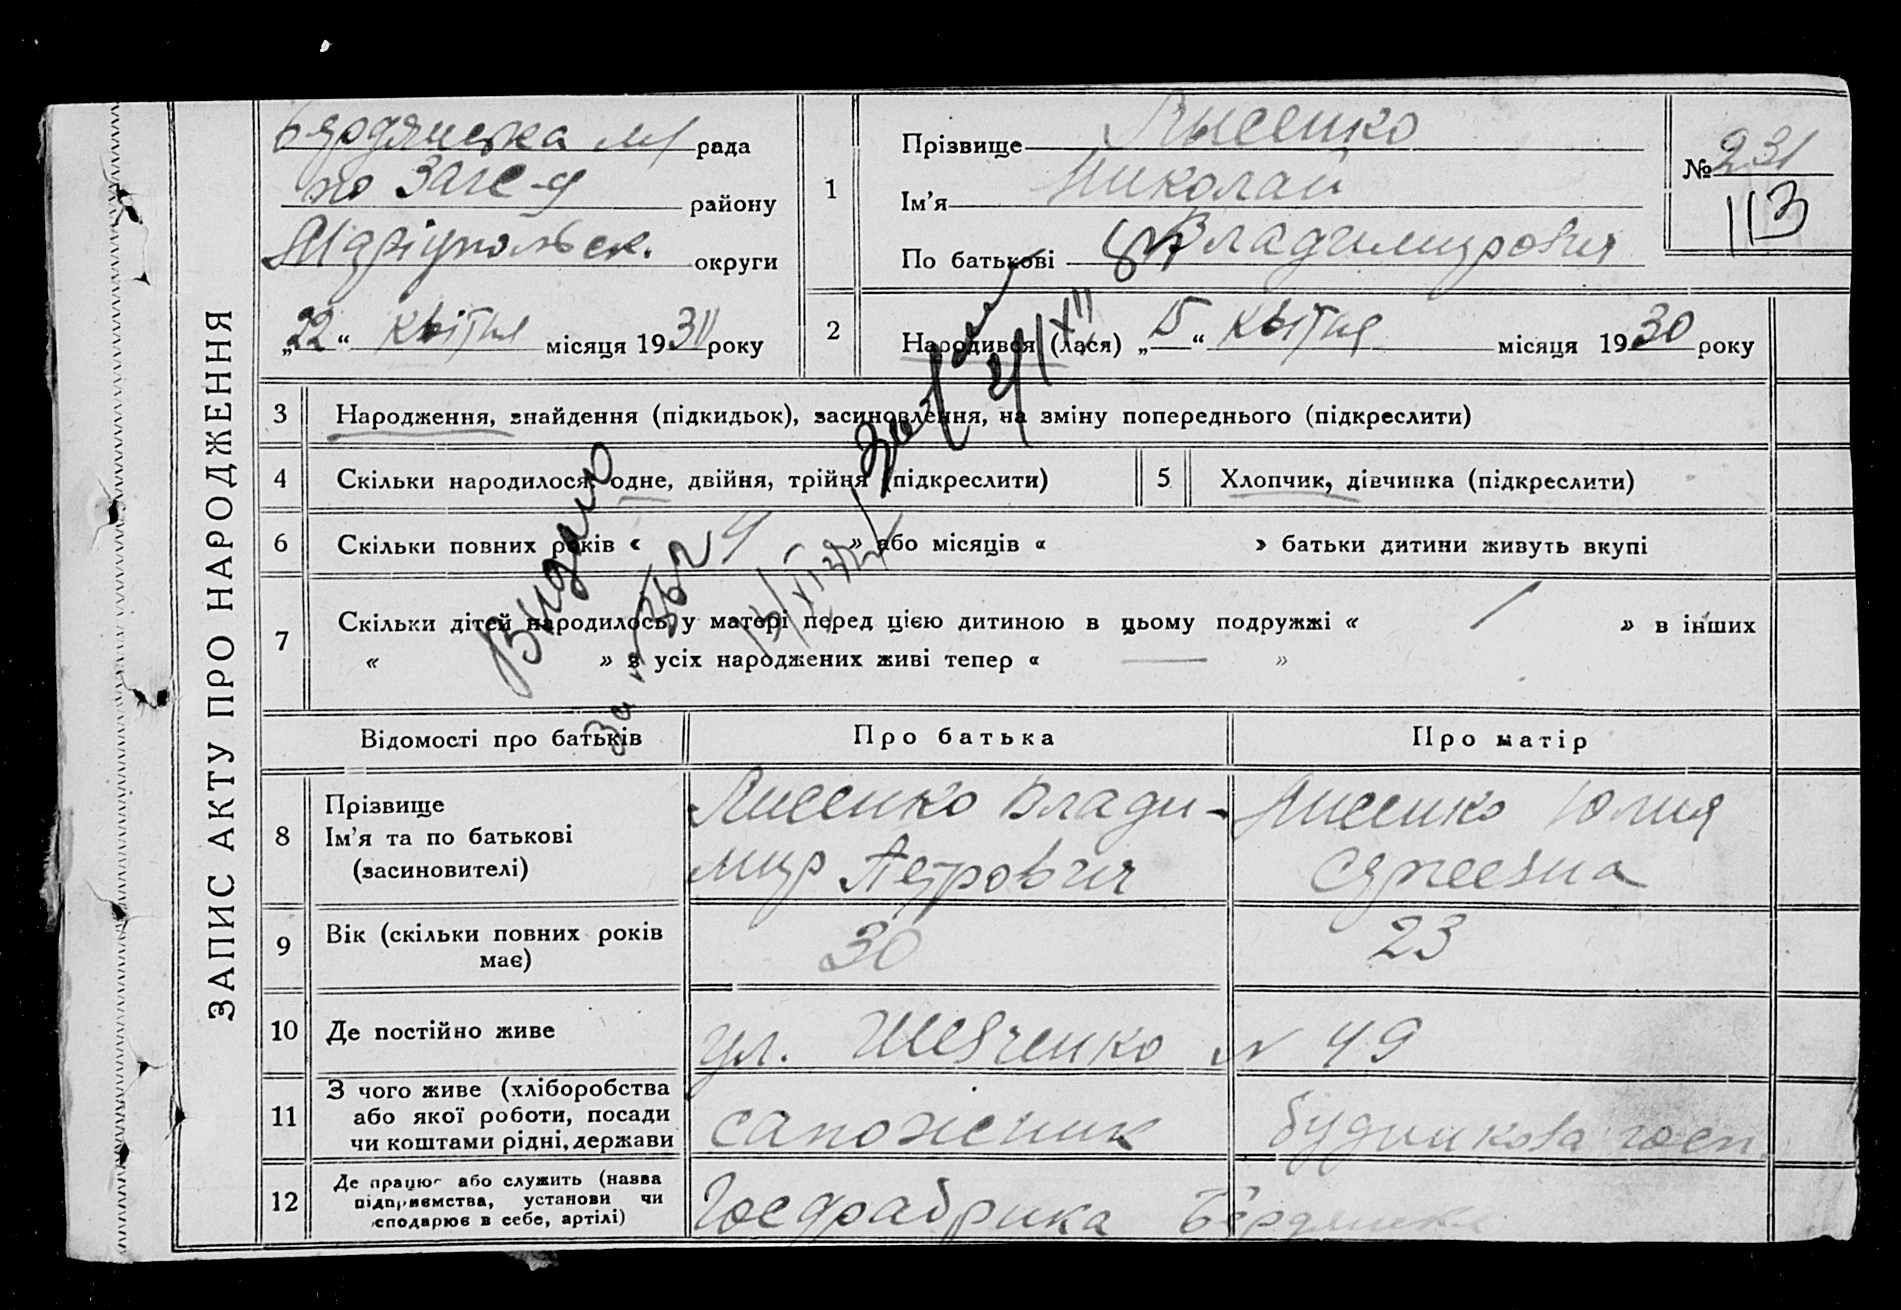 ЗАПИС АКТУ ПРО НАРОДЖЕННЯ
Бердянська м/рада
по ЗАГС-у району
Маріупольськ. округи
„22“ квітня місяця 1930 року
1
Прізвище Лысенко
Ім’я Николай
По батькові Владимирович
№ 231
113
2
Народився (лася) „15“ квітня місяця 1930 року
3 Народження, знайдення (підкидьок), засиновлення, на зміну попереднього (підкреслити)
4 Скільки народилося: одне, двійня, трійня (підкреслити)
5 Хлопчик, дівчинка (підкреслити)
6 Скільки повних років « » або місяців « » батьки дитини живуть вкупі
7 Скільки дітей народилось у матері перед цією дитиною в цьому подружжі « / » в інших
« » з усіх народжених живі тепер « — »
Видано
За №
Відомості про батьків Про батька Про матір
8
Прізвище
Ім’я та по батькові
(засиновителі)
Лисенко Влади-
мир Петрович
Лисенко Юлия
Сергеевна
9 Вік (скільки повних років
має)
30 23
10 Де постійно живе ул. Шевченко № 49
11
З чого живе (хліборобства
або якої роботи, посади
чи коштами рідні, держави
сапожник будинкова госп.
12
Де працює або служить (назва
підприємства, установи чи
сподарює в себе, артілі)
Госфабрика Бердянськ